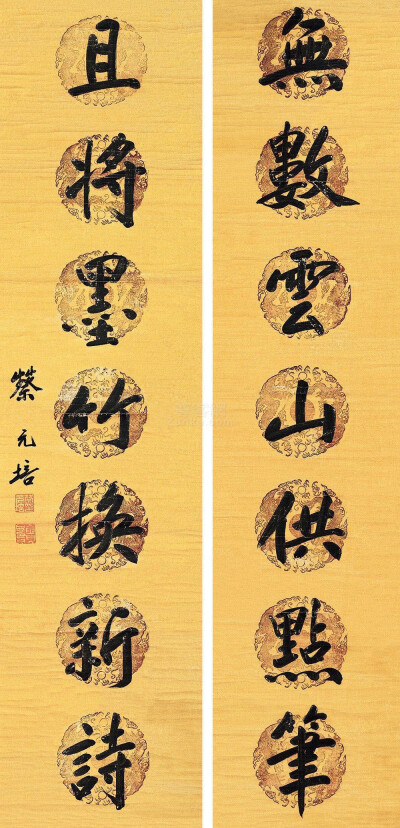 無數雲山供點筆
且將墨竹換新詩
蔡元培